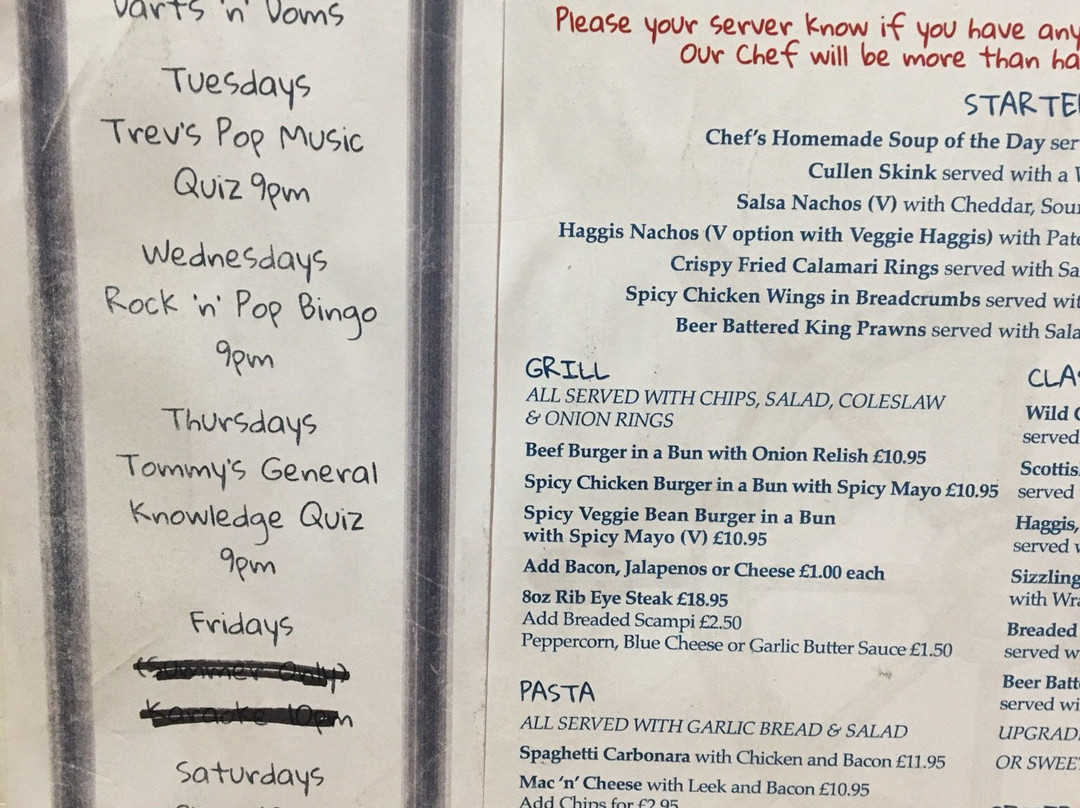 Darts 'n' Doms
Tuesdays
Trev's Pop Music
Quiz 9pm
Wednesdays
Rock 'n' Pop Bingo
9pm
Thursdays
Tommy's General
Knowledge Quiz
9pm
Fridays
(Summer Only)
Karaoke 10pm
Saturdays
Please your server know if you have any
Our Chef will be more than ha
STARTE
Chef's Homemade Soup of the Day ser
Cullen Skink served with a
Salsa Nachos (V) with Cheddar, Sou
Haggis Nachos (V option with Veggie Haggis) with Pate
Crispy Fried Calamari Rings served with Sa
Spicy Chicken Wings in Breadcrumbs served wit
Beer Battered King Prawns served with Sala
GRILL
ALL SERVED WITH CHIPS, SALAD, COLESLAW
& ONION RINGS
Beef Burger in a Bun with Onion Relish £10.95
Spicy Chicken Burger in a Bun with Spicy Mayo £10.95
Spicy Veggie Bean Burger in a Bun
with Spicy Mayo (V) £10.95
Add Bacon, Jalapenos or Cheese £1.00 each
8oz Rib Eye Steak £18.95
Add Breaded Scampi £2.50
Peppercorn, Blue Cheese or Garlic Butter Sauce £1.50
PASTA
ALL SERVED WITH GARLIC BREAD & SALAD
Spaghetti Carbonara with Chicken and Bacon £11.95
Mac 'n' Cheese with Leek and Bacon £10.95
Add Chips for £2.95
CLA
Wild
served
Scottis
served
Haggis,
served
Sizzling
with Wra
Breaded
served w
Beer Batt
served wi
UPGRAD
OR SWEE